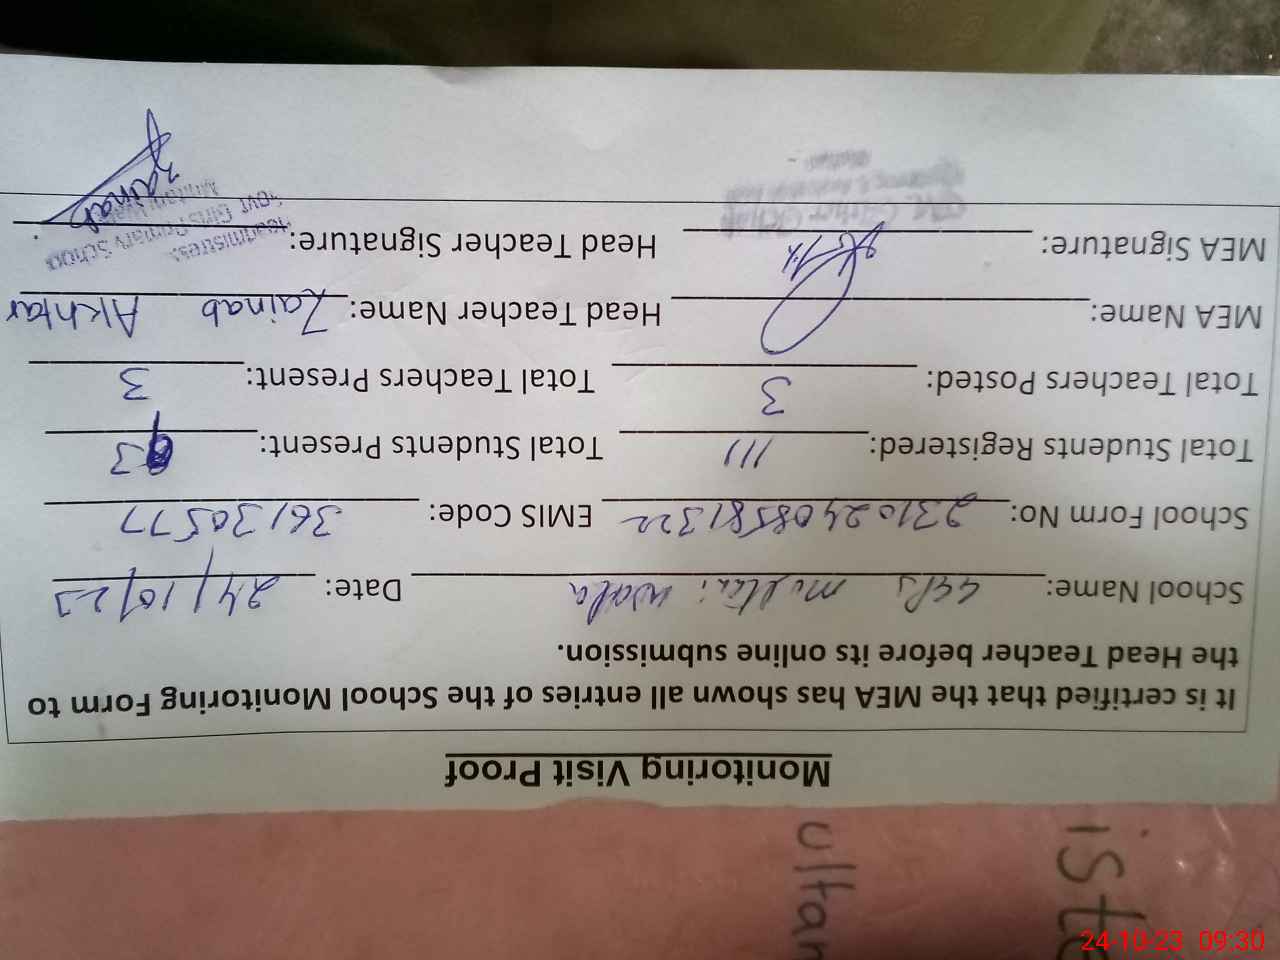 Monitoring Visit Proof
It is certified that the MEA has shown all entries of the School Monitoring Form to
the Head Teacher before its online submission.
School Name: GGPS wala Date: 24/10/23
School Form No: 231024085581322 EMIS Code: 36130577
Total Students Registered: 111 Total Students Present: 93
Total Teachers Posted: 3 Total Teachers Present: 3
MEA Name: Head Teacher Name: Zainab Akhtar
MEA Signature: Head Teacher Signature: Zainab
Headmistress
Govt. Girls Primary School
iste
ultan
24-10-23 09:30